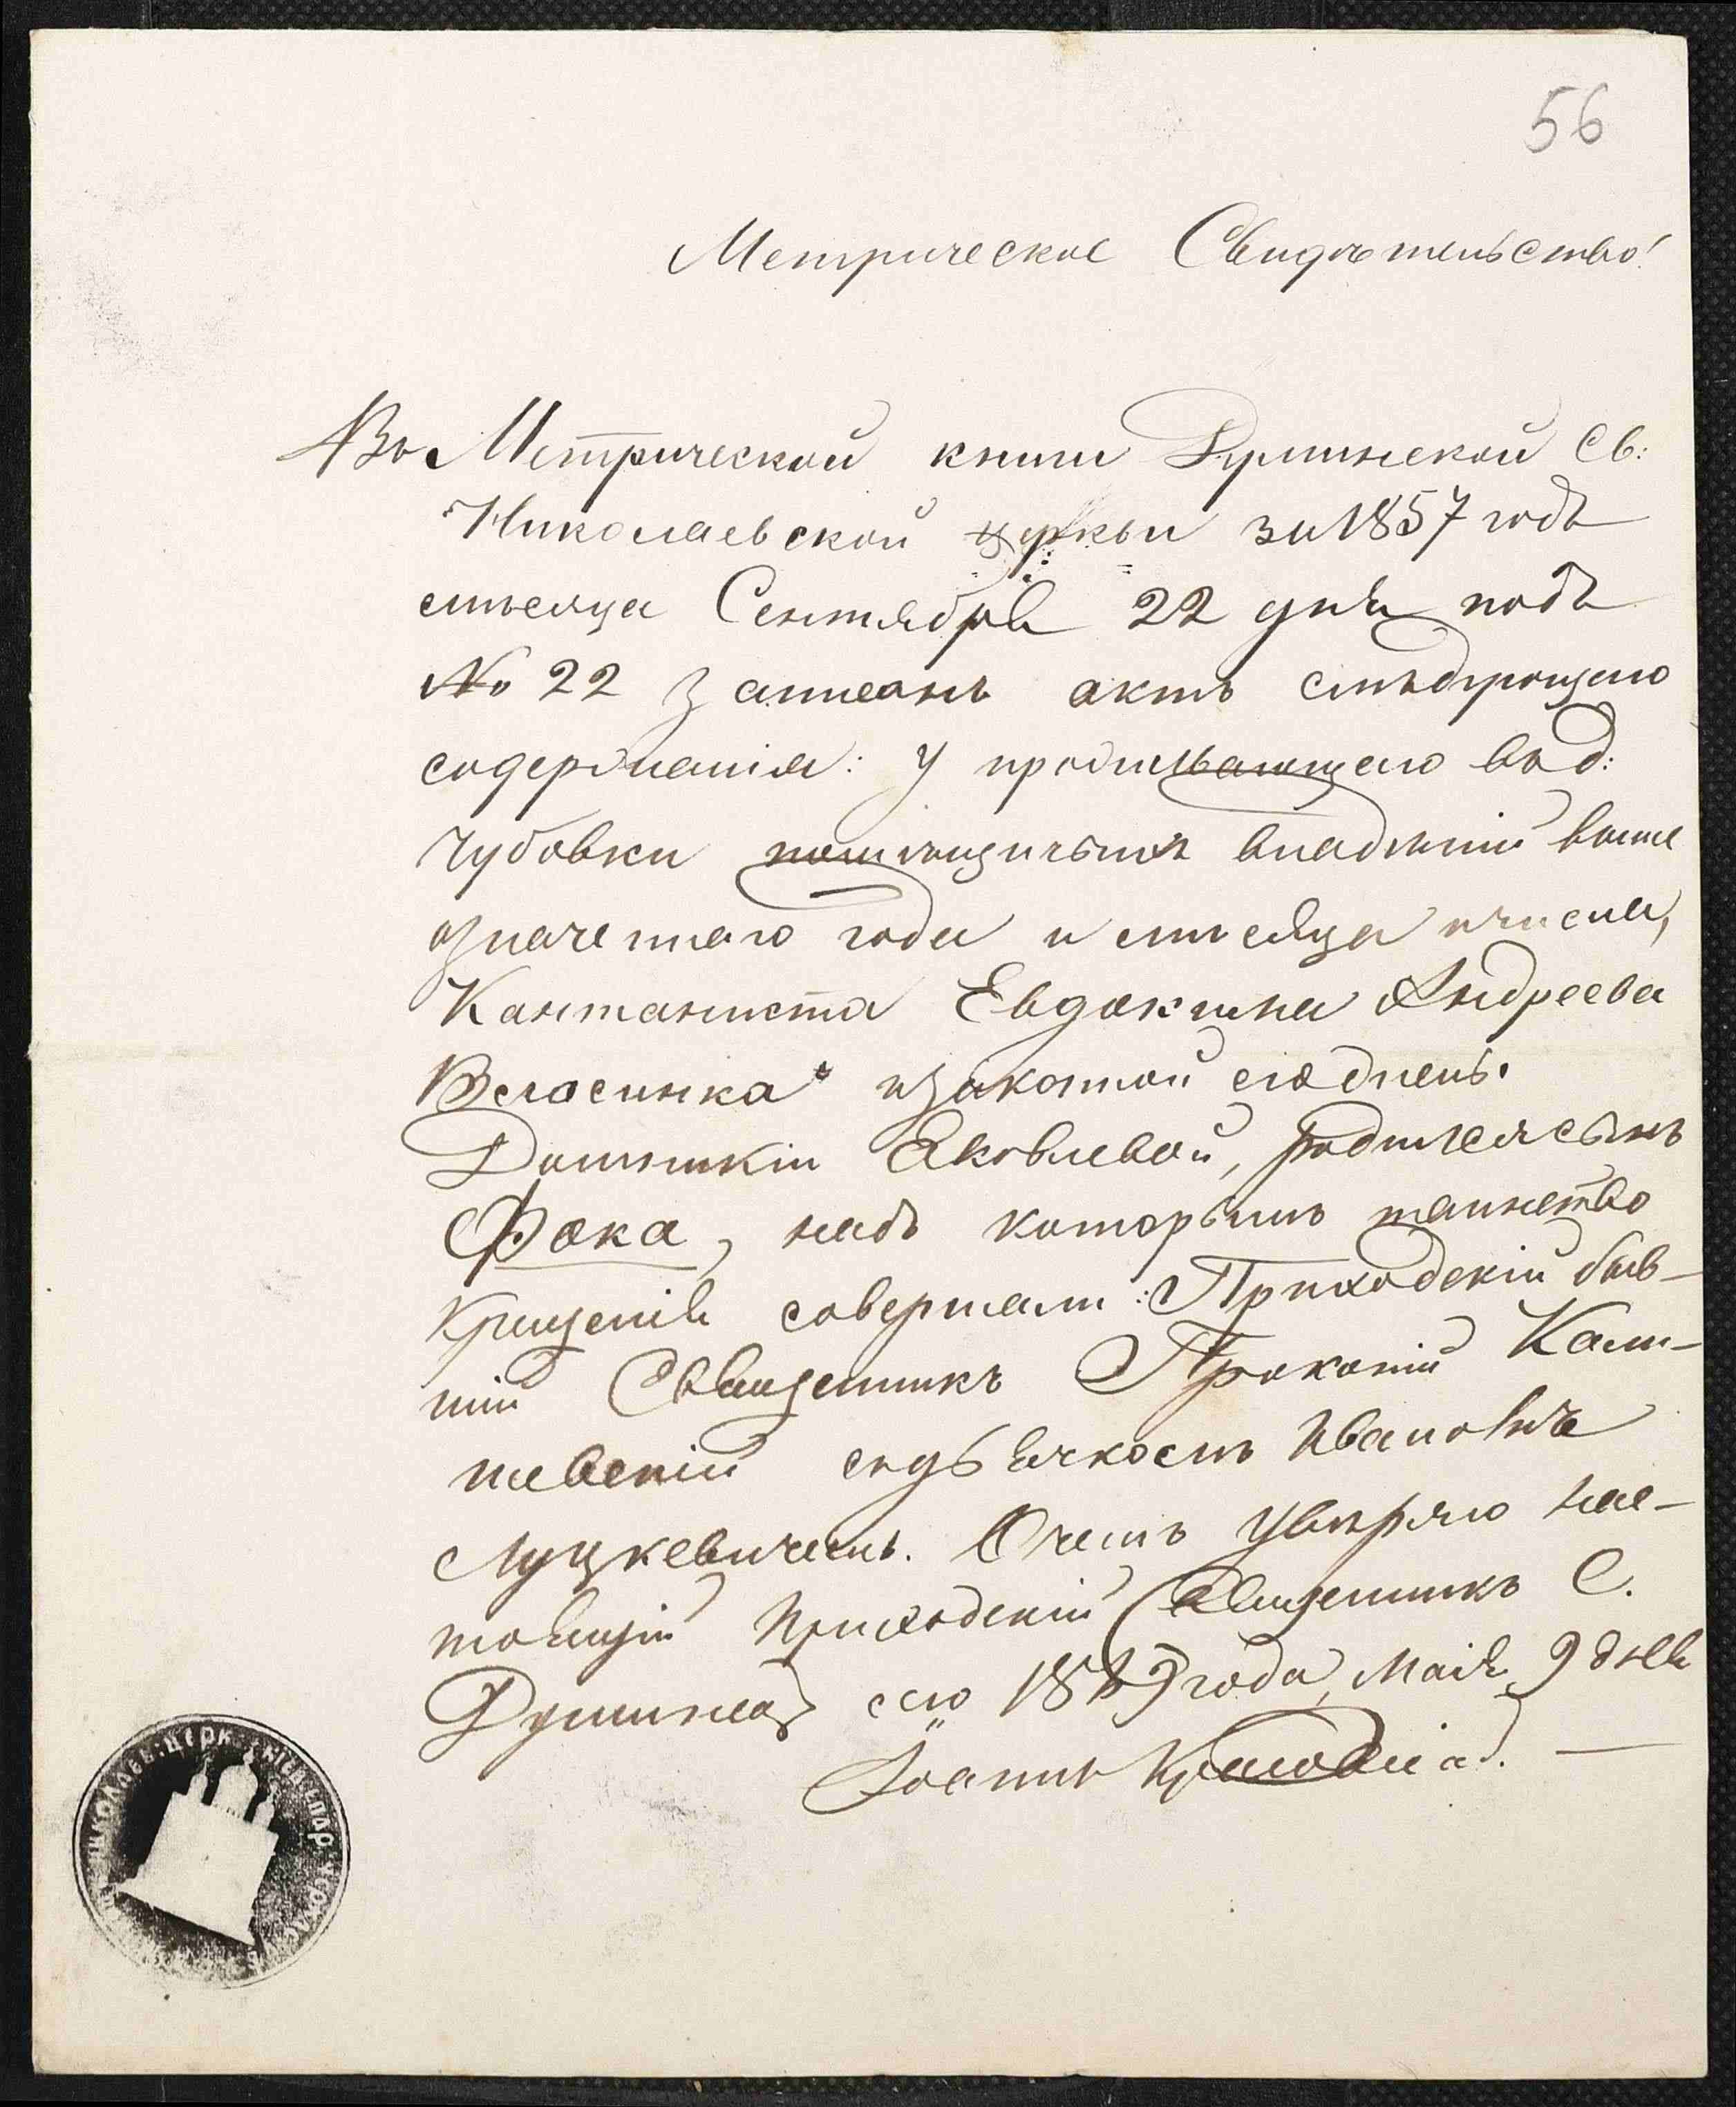 56
Метрическое Свидѣтельство!
Въ Метрической книги Думинской Св:
Николаевской церкви за 1857 годъ
мѣсяца Сентября 22 дня подъ
№ 22 записанъ актъ слѣдующаго
содержанія: У проживающаго въ д:
Чубовки помѣщичьихъ владѣній выше
означеннаго года и мѣсяца и числа,
Кантаниста Евдокима Андреева
Власинка изаконной его жены
Домникіи Яковлевой, родился сынъ
Фока, надъ которымъ таинство
Крещенія совершали: Приходскій быв-
шій Священникъ Прокопій Кали-
шевскій съ дьячкомъ Ивановъ
Луцкевичемъ. О чемъ увѣряю нас-
тоящій Приходскій Священникъ С.
сего года, Маія 9 дня
Іоаннъ